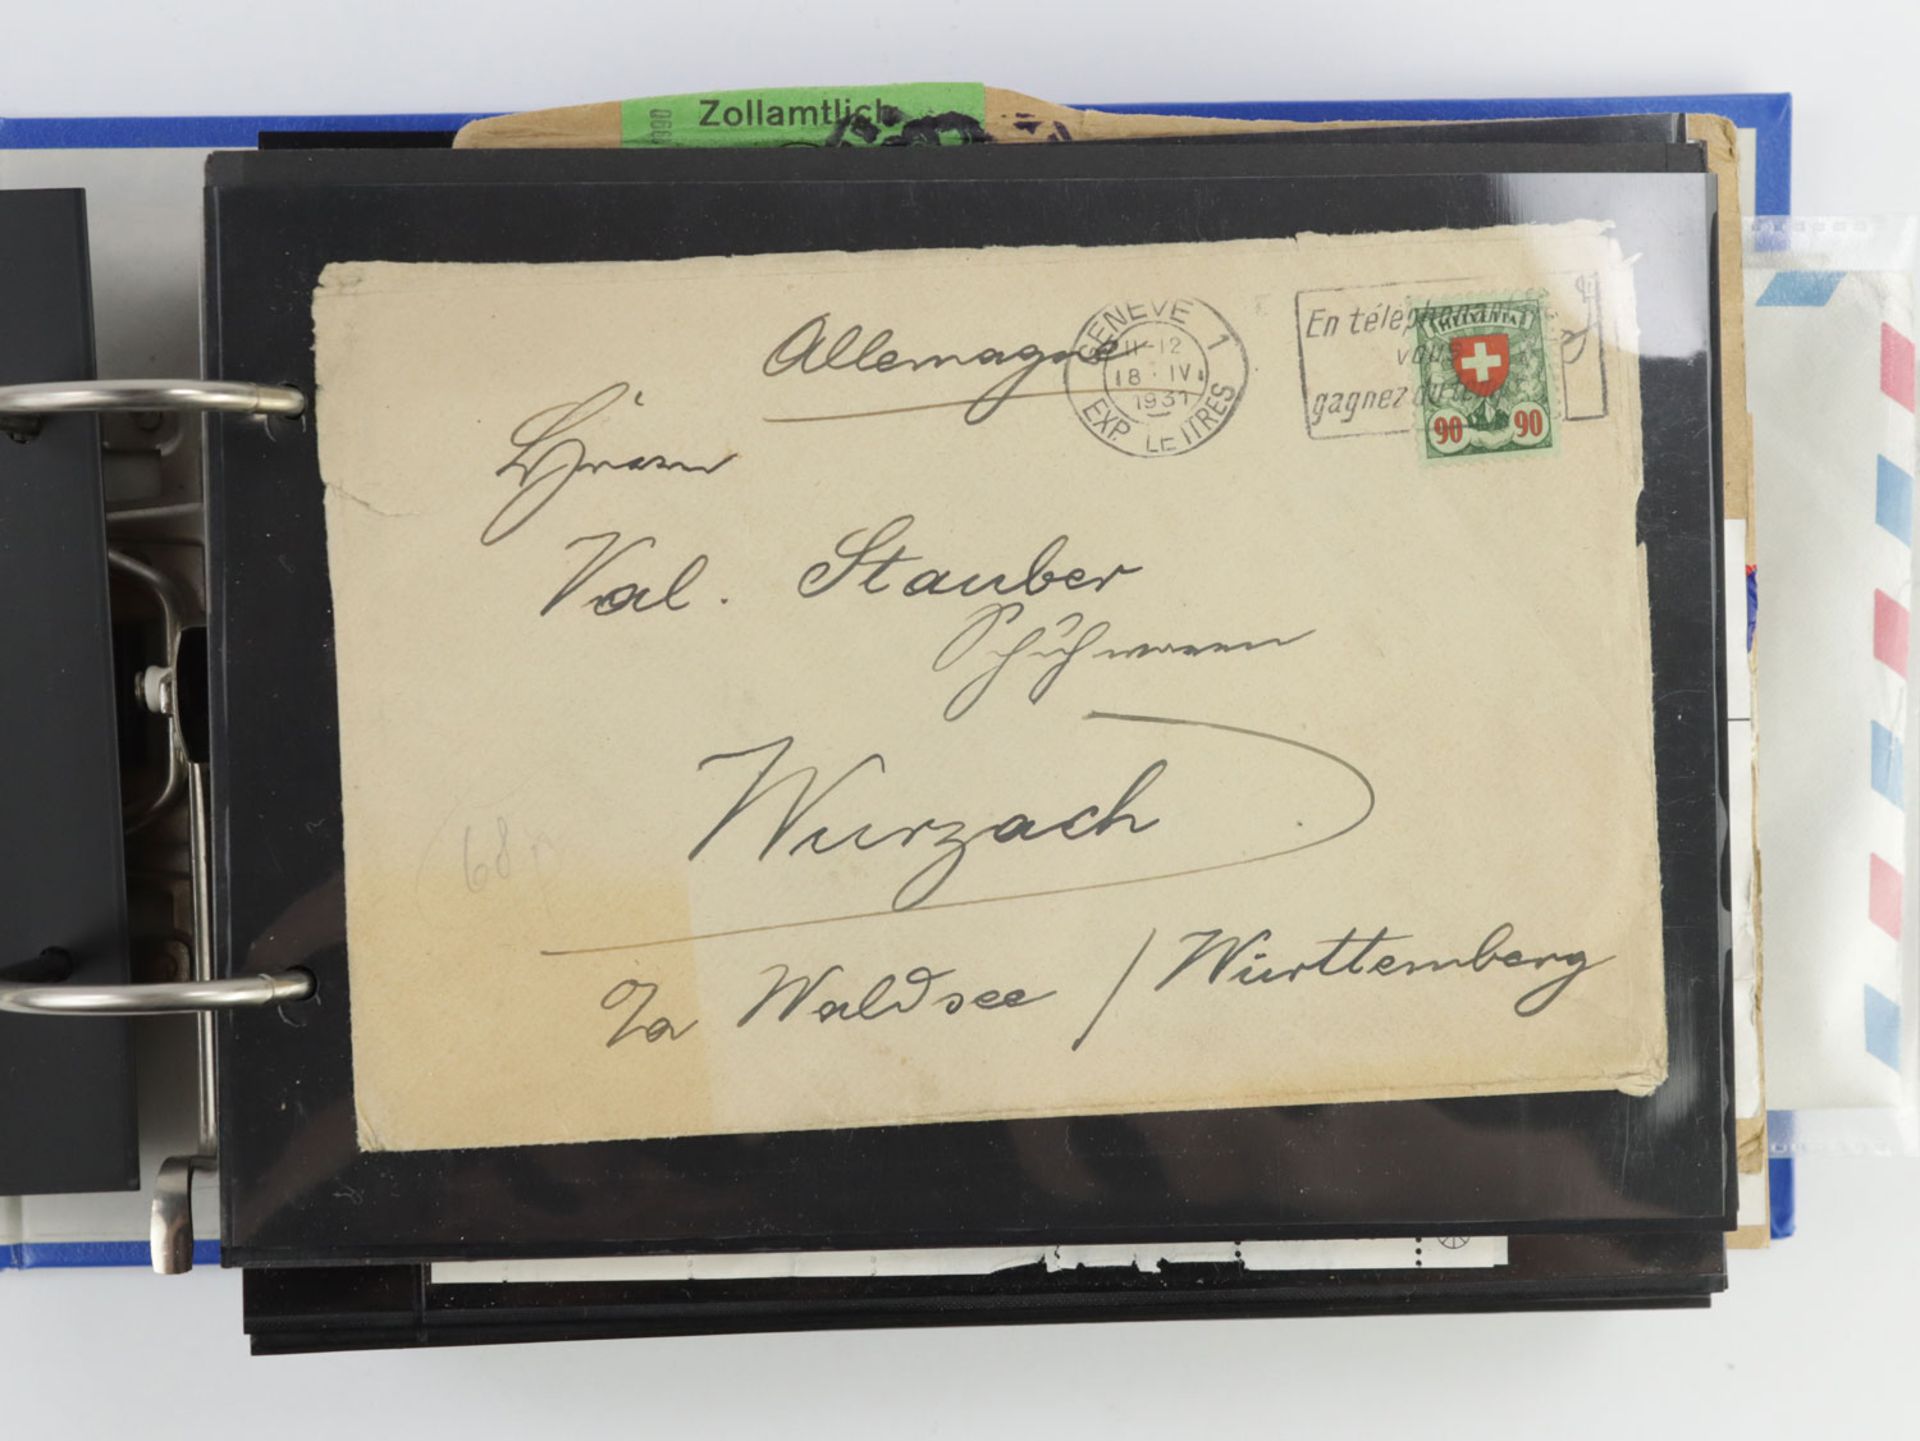 Zollamtlich
Allemagne
GENEVE 1
II-12
18·IV·
1931
EXP. LETTRES
En téléphonant
vous
gagnez du temps
HELVETIA
90 90
Herrn
Val. Stauber
Schuhwaren
Wurzach
68
Za Waldsee / Württemberg